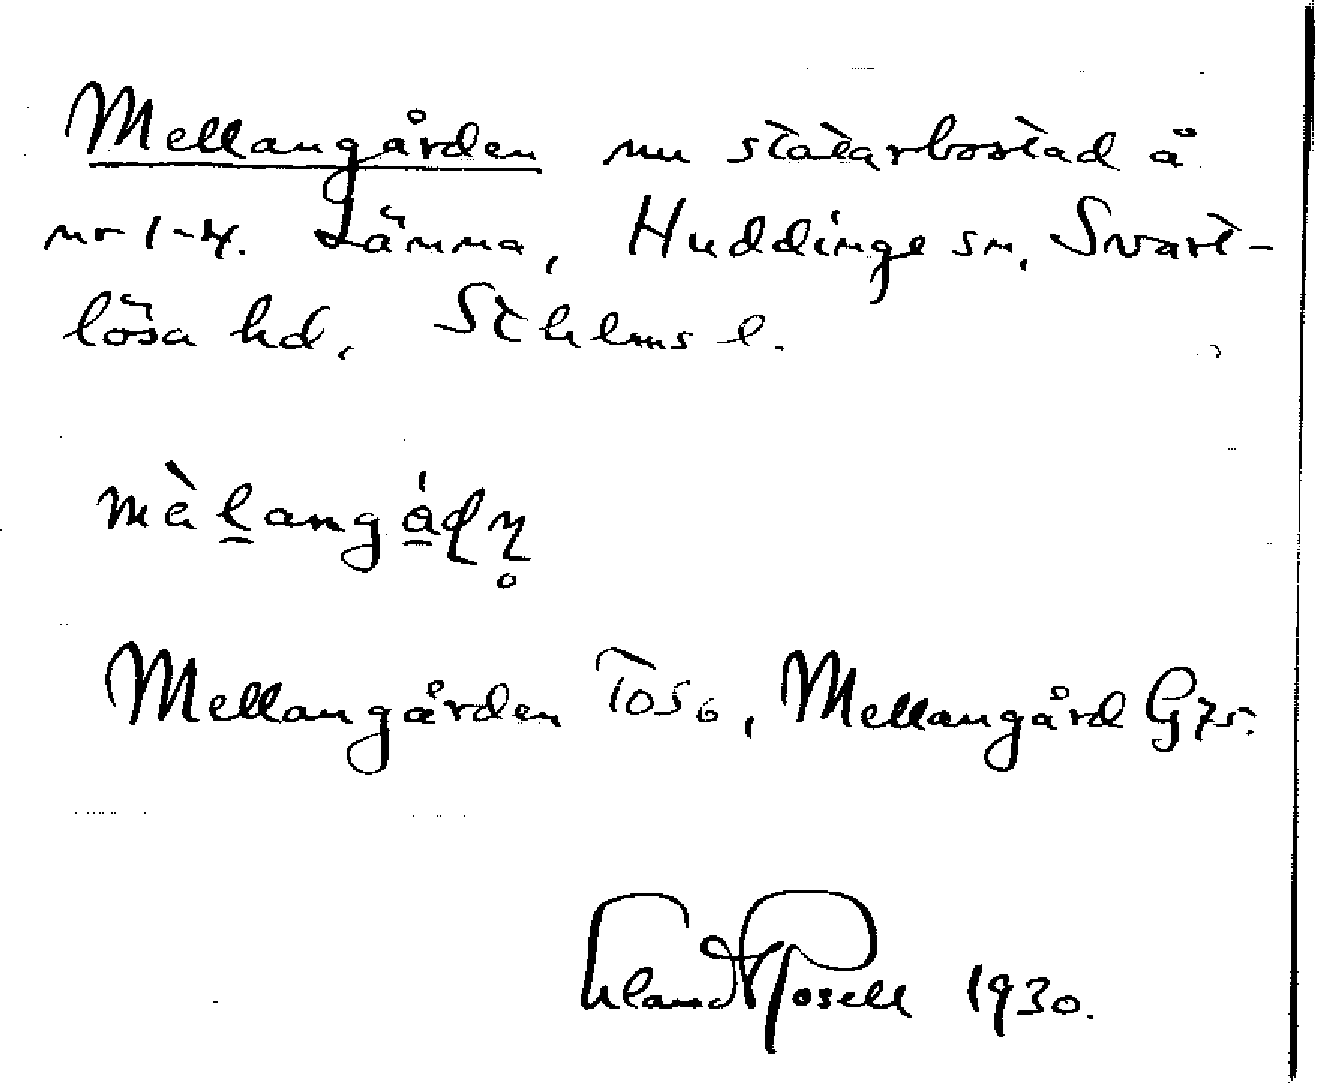 Mellangården nu statarbostad å
nr 1-4. Länna, Huddinge sn, Svart-
lösa hd, Sthlms l.
mèlangádn̥
Mellangården TOS6, Mellangård G75.
Erland Rosell 1930.